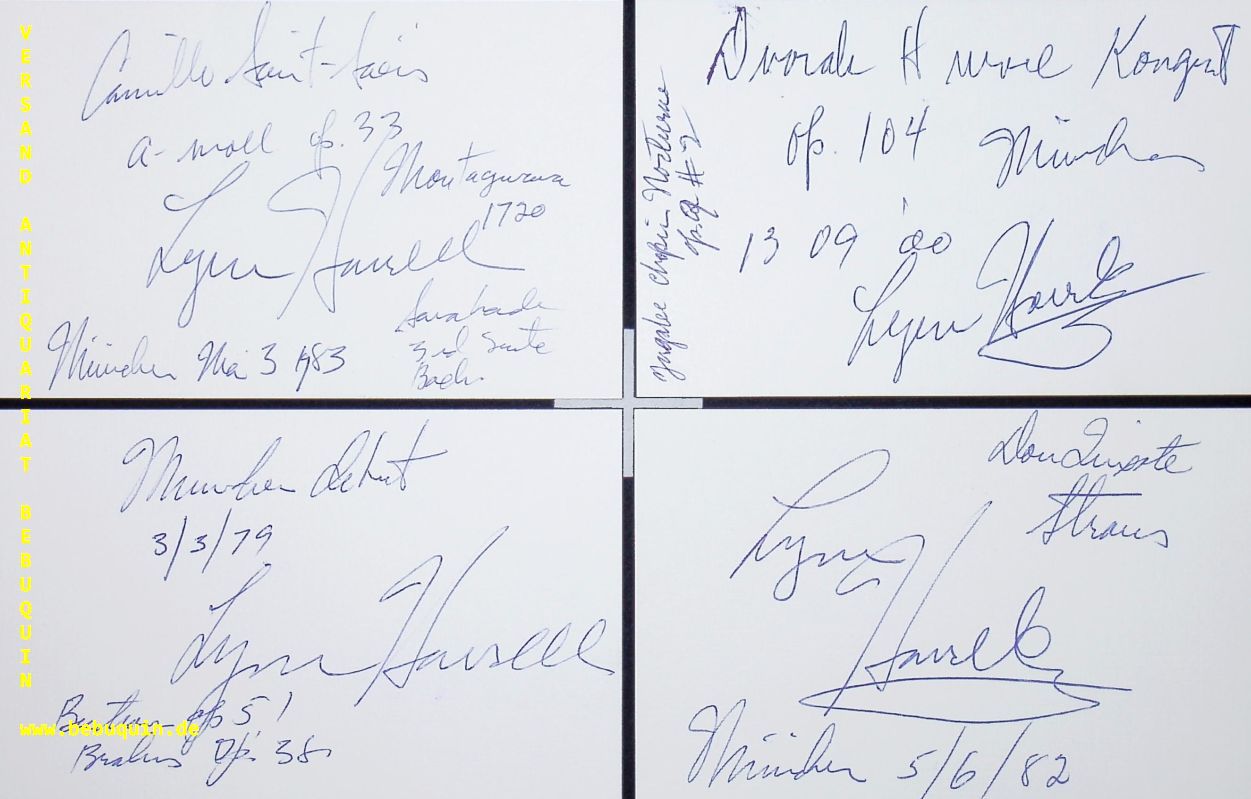 Camille Saint-Saëns
a-moll op. 33
Montagnana
1720
Lynn Harrell
Sarabande
3rd Suite
Bach
München Mai 3 1983
Dvorak H moll Konzert
op. 104 München
13 09 '00
Lynn Harrell
Zugabe Chopin Nocturne
op. #2
München Debut
3/3/79
Lynn Harrell
op 51
Brahms Op. 38
Don Quixote
Straus
Lynn
Harrell
München 5/6/82
VERSAND ANTIQUARIAT BEBUQUIN
www.bebuquin.de